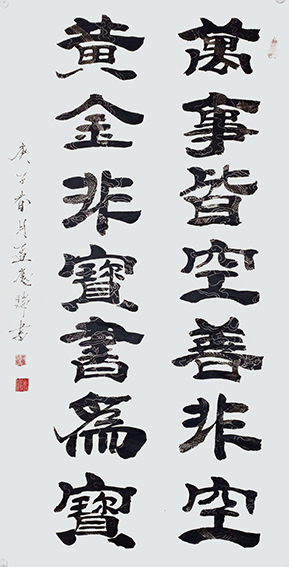 萬事皆空善非空
黃金非寶書為寶
庚子春月
書